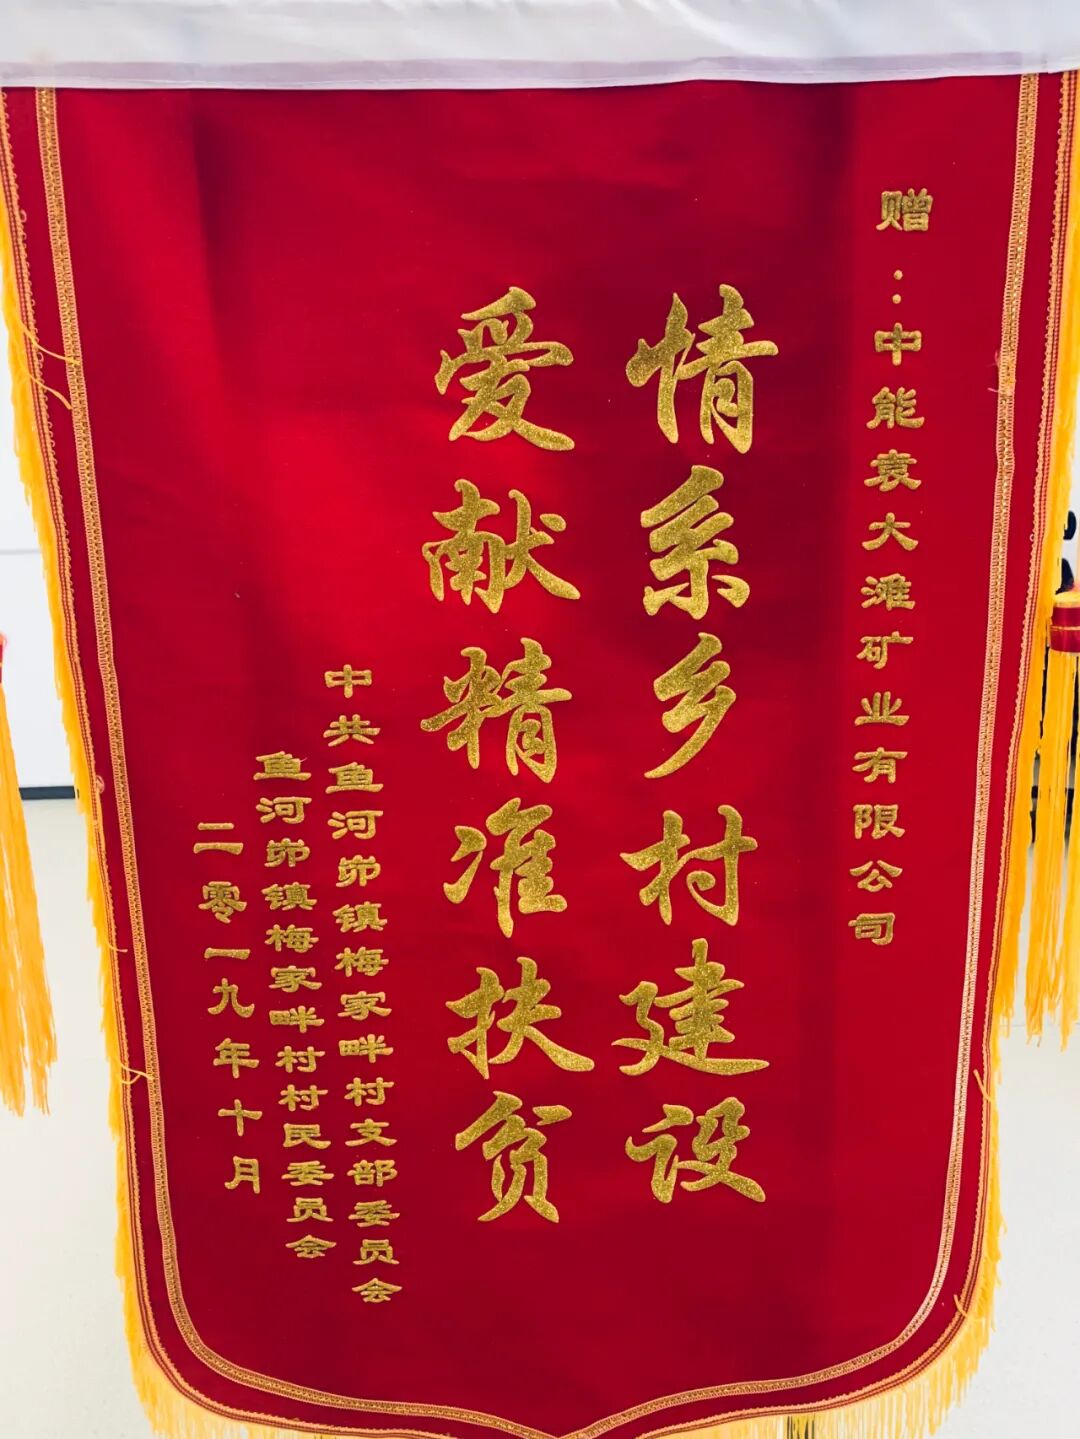 赠：中能袁大滩矿业有限公司
情系乡村建设
爱献精准扶贫
中共鱼河峁镇梅家畔村支部委员会
鱼河峁镇梅家畔村村民委员会
二零一九年十月